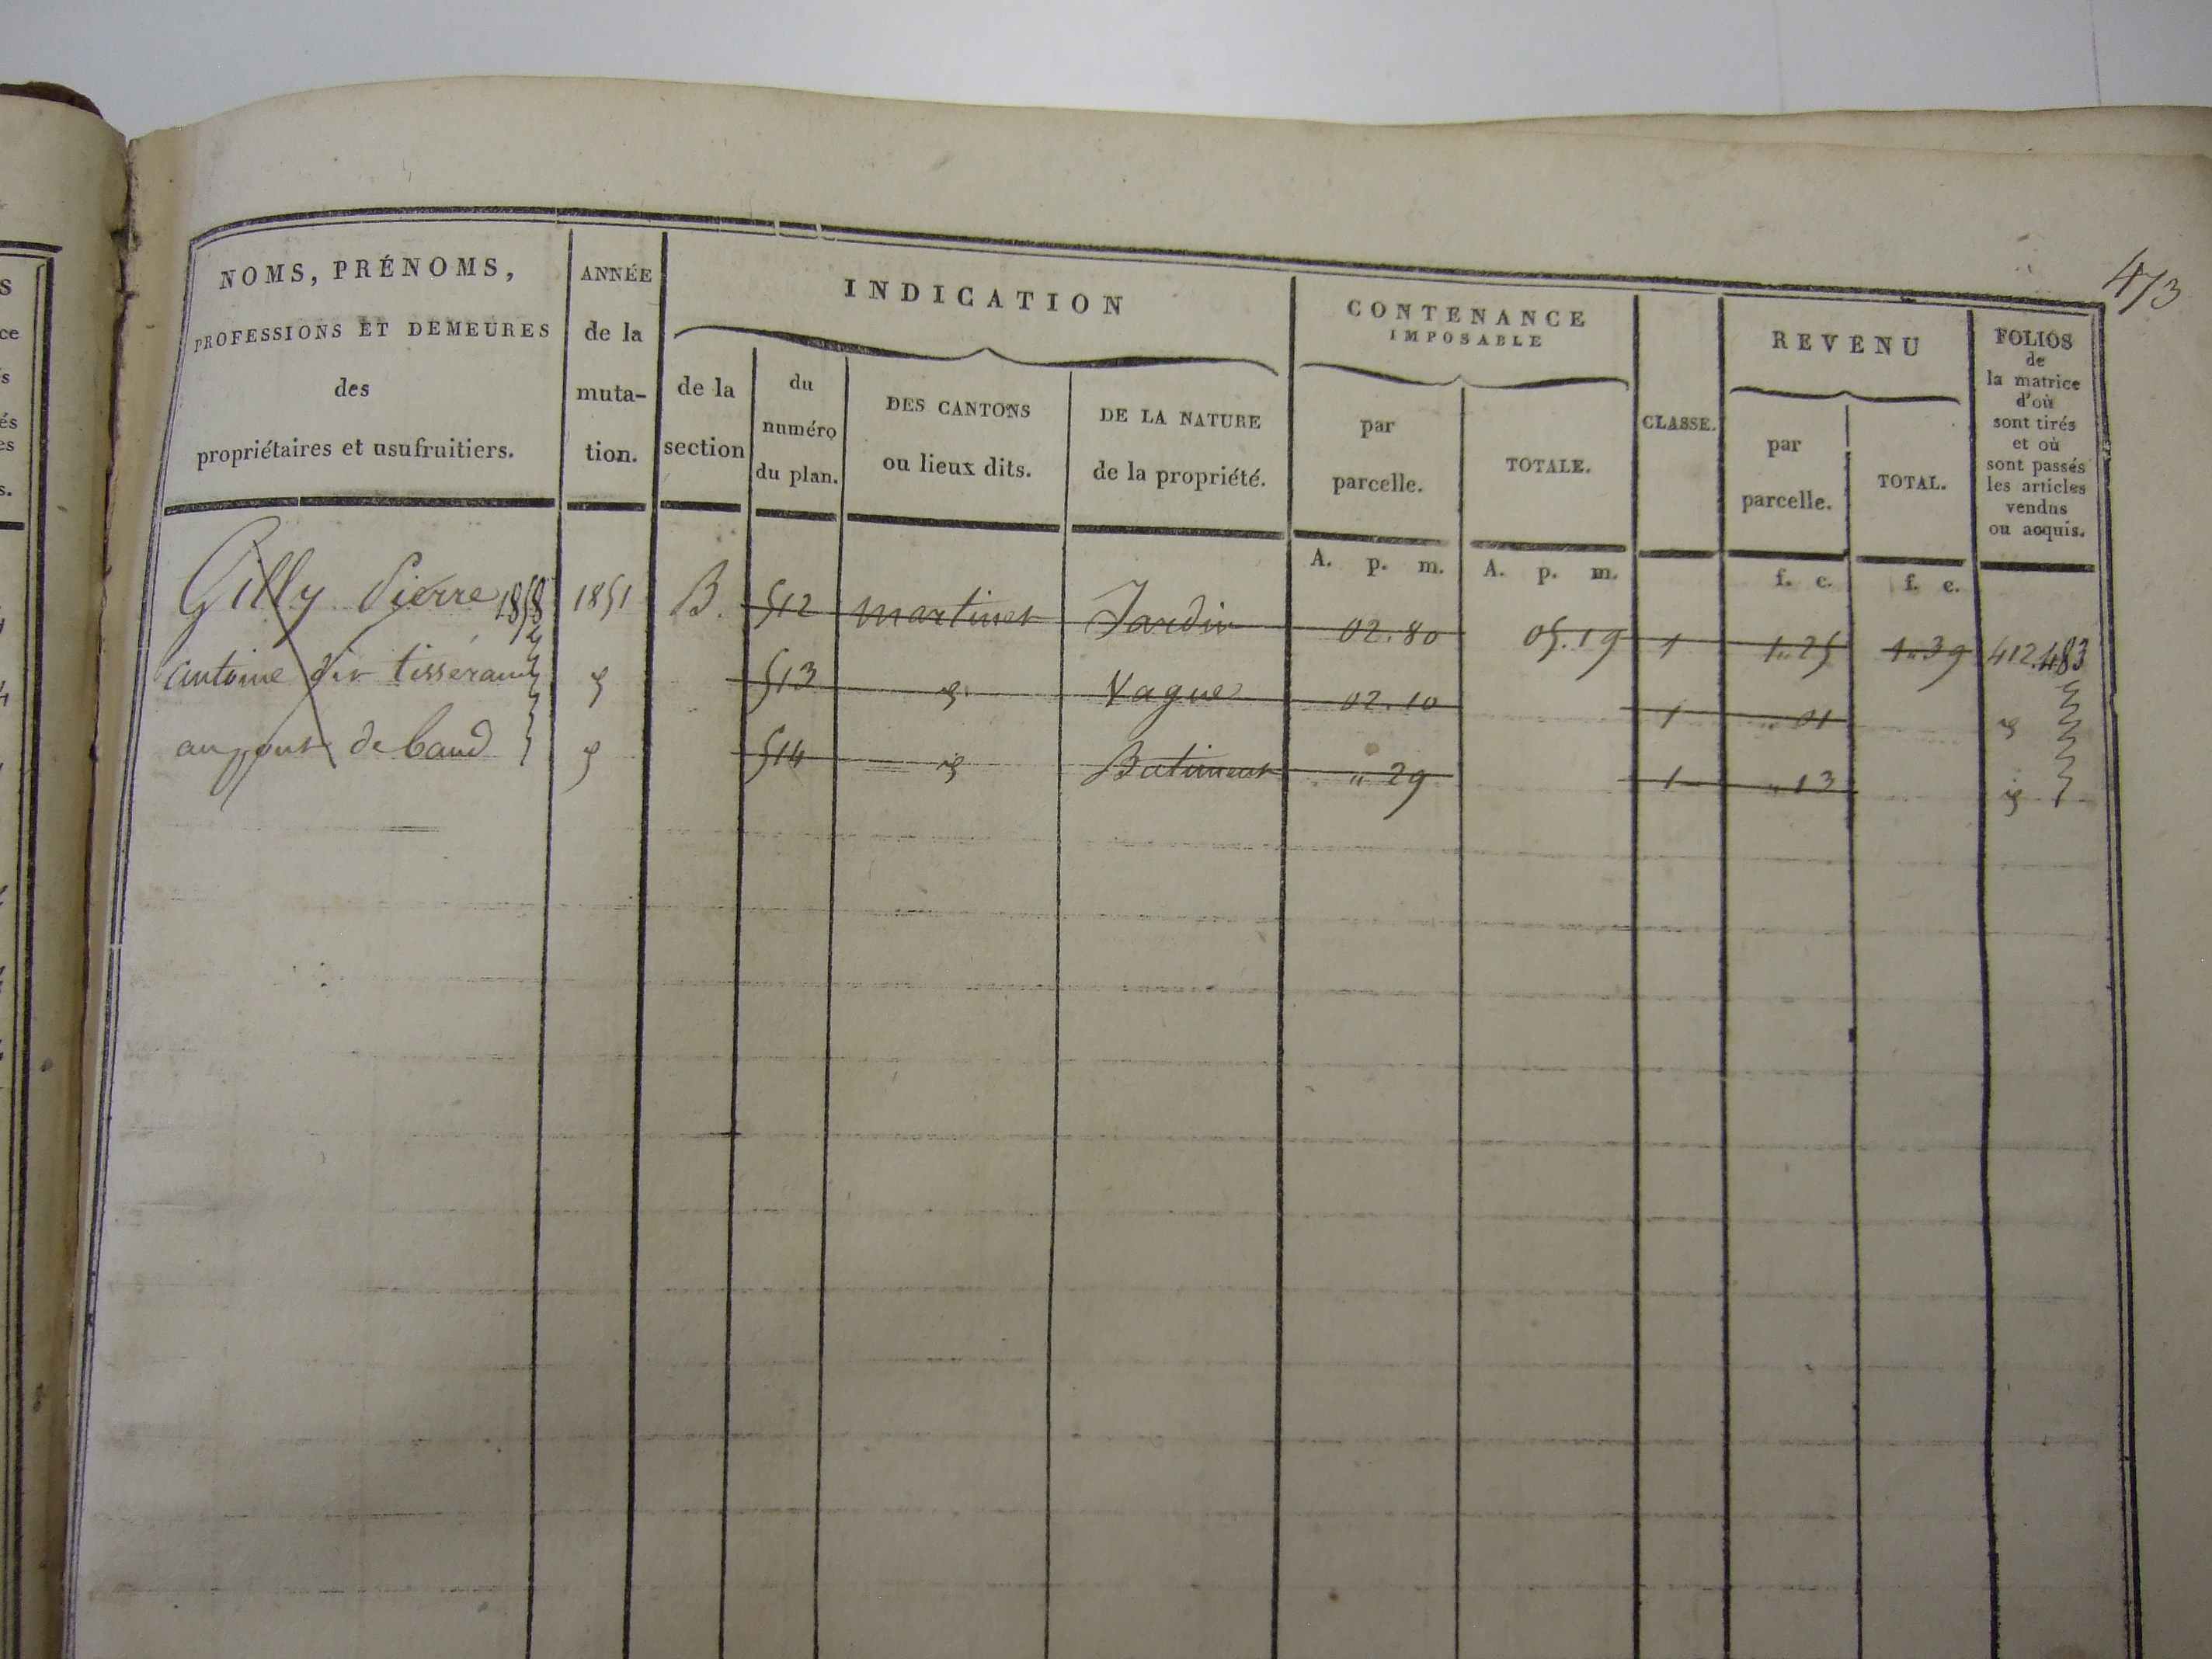 473
NOMS, PRÉNOMS,
PROFESSIONS ET DEMEURES
des
propriétaires et usufruitiers.
ANNÉE
de la
muta-
tion.
INDICATION
de la
section
du
numéro
du plan.
DES CANTONS
ou lieux dits.
DE LA NATURE
de la propriété.
CONTENANCE
IMPOSABLE
par
parcelle.
TOTALE.
CLASSE.
REVENU
par
parcelle.
TOTAL.
FOLIOS
de
la matrice
d'où
sont tirés
et où
sont passés
les articles
vendus
ou acquis.
A. p. m. A. p. m. f. c. f. c.
Gilly Pierre 1858 1851 B. 512 martinet Jardin 02.80 05.19 1 1" 25 1" 39 412.483
antoine tisserand 513 Vague 02.10 1 " 01
au pont de baud 514 Batiment " 29 1 " 13
S
ce
s
és
es
s.